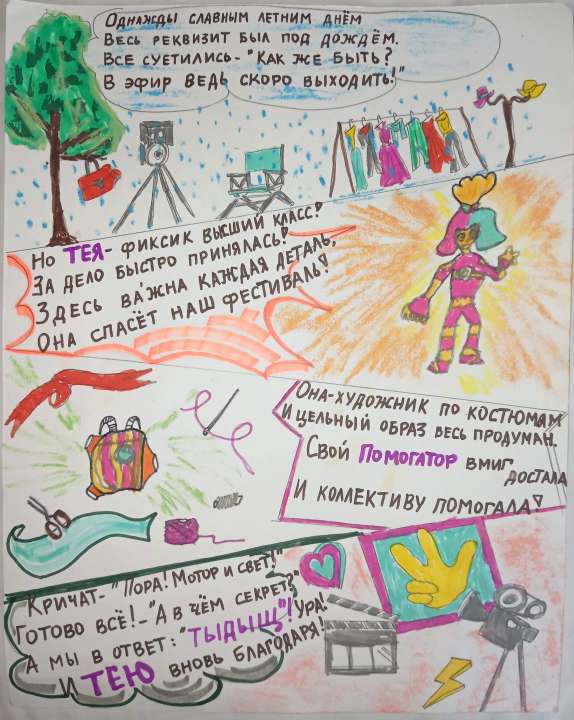 Однажды славным летним днём
Весь реквизит был под дождём.
Все суетились- "Как же быть?
В эфир ведь скоро выходить!"
Но ТЕЯ- фиксик высший класс!
За дело быстро принялась!
Здесь важна каждая деталь,
Она спасёт наш фестиваль!
Она-художник по костюмам
И цельный образ весь продуман.
Свой Помогатор вмиг
достала
И коллективу помогала!
Кричат- "Пора! Мотор и свет!"
Готово всё!-"А в чём секрет?"
А мы в ответ: "ТЫДЫЩ"! Ура!
И ТЕЮ вновь благодаря!